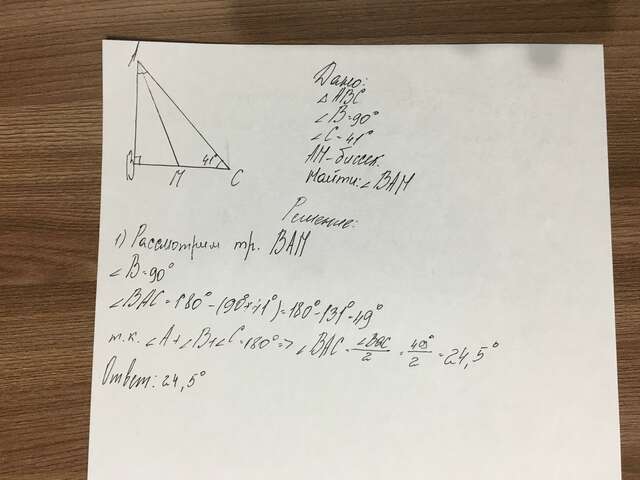 A
B
M
C
41°
Дано:
△ ABC
∠B=90°
∠C=41°
AM-биссек.
Найти: ∠BAM
Решение:
1) Рассмотрим тр. BAM
∠B=90°
∠BAC=180°-(90°+41°)=180°-131°=49°
т.к. ∠A+∠B+∠C=180°=> ∠BAC=∠BAC/2=49°/2=24,5°
Ответ: 24,5°